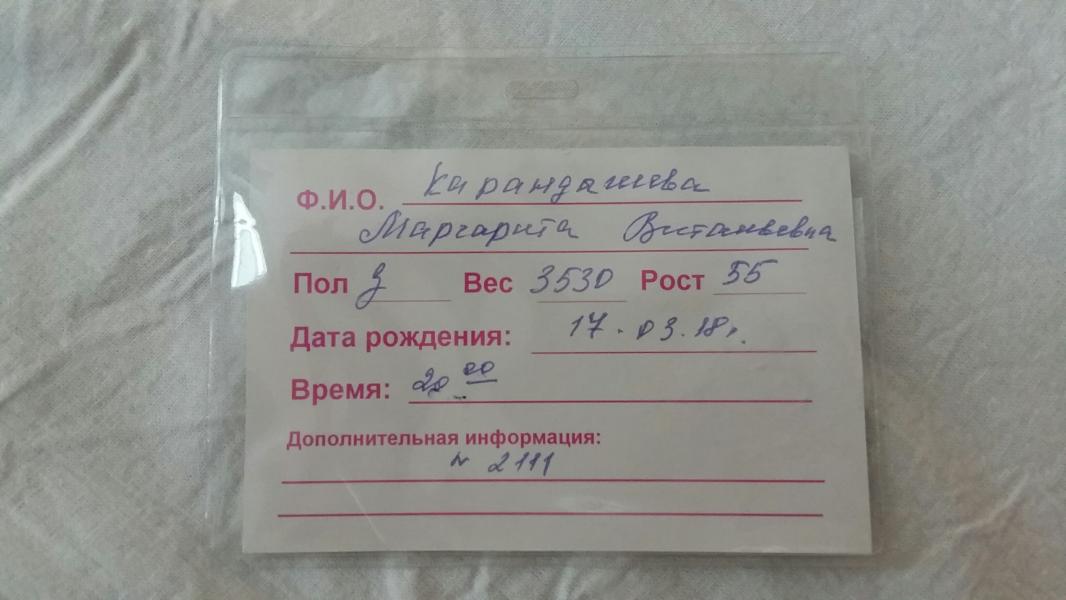 Ф.И.О. Карандашева
Маргарита Витальевна
Пол д Вес 3530 Рост 55
Дата рождения: 17.03.18г.
Время: 20 00
Дополнительная информация:
N 2111